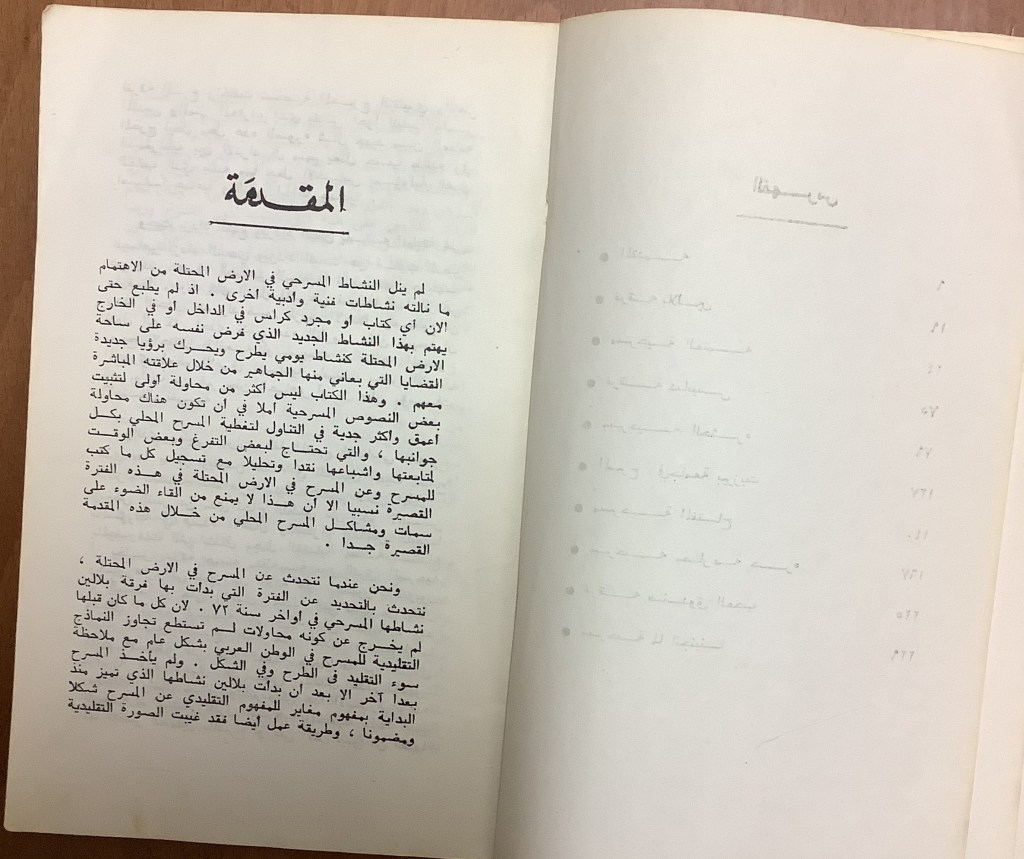 المقدمة
لم ينل النشاط المسرحي في الارض المحتلة من الاهتمام
ما نالته نشاطات فنية وادبية اخرى . اذ لم يطبع حتى
الان اي كتاب او مجرد كراس في الداخل او في الخارج
يهتم بهذا النشاط الجديد الذي فرض نفسه على ساحة
الارض المحتلة كنشاط يومي يطرح ويحرك برؤيا جديدة
القضايا التي يعاني منها الجماهير من خلال علاقته المباشرة
معهم . وهذا الكتاب ليس أكثر من محاولة اولى لتثبيت
بعض النصوص المسرحية أملا في ان تكون هناك محاولة
اعمق واكثر جدية في التناول لتغطية المسرح المحلي بكل
جوانبها ، والتي تحتاج لبعض التفرغ وبعض الوقت
لمتابعتها واشباعها نقدا وتحليلا مع تسجيل كل ما كتب
للمسرح وعن المسرح في الارض المحتلة في هذه الفترة
القصيرة نسبيا الا ان هذا لا يمنع من القاء الضوء على
سمات ومشاكل المسرح المحلي من خلال هذه المقدمة
القصيرة جدا .
ونحن عندما نتحدث عن المسرح في الارض المحتلة ،
نتحدث بالتحديد عن الفترة التي بدأت بها فرقة بلالين
نشاطها المسرحي في اواخر سنة ٧٢ . لان كل ما كان قبلها
لم يخرج عن كونه محاولات لم تستطع تجاوز النماذج
التقليدية للمسرح في الوطن العربي بشكل عام مع ملاحظة
سوء التقليد في الطرح وفي الشكل . ولم يأخذ المسرح
بعدا آخر الا بعد ان بدأت بلالين نشاطها الذي تميز منذ
البداية بمفهوم مغاير للمفهوم التقليدي عن المسرح شكلا
ومضمونا ، وطريقة عمل أيضا فقد غيبت الصورة التقليدية